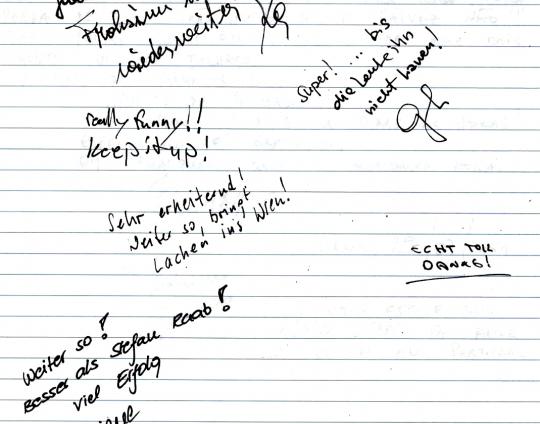 Frohsinn
wieder weiter
Super! ... bis
die Leute ihn
nicht hauen!
really funny!!
keep it up!
Sehr erheiternd!
Weiter so bringt
Lachen ins Wien!
ECHT TOLL
DANKE!
Weiter so!
Besser als Stefan Raab!
viel Erfolg